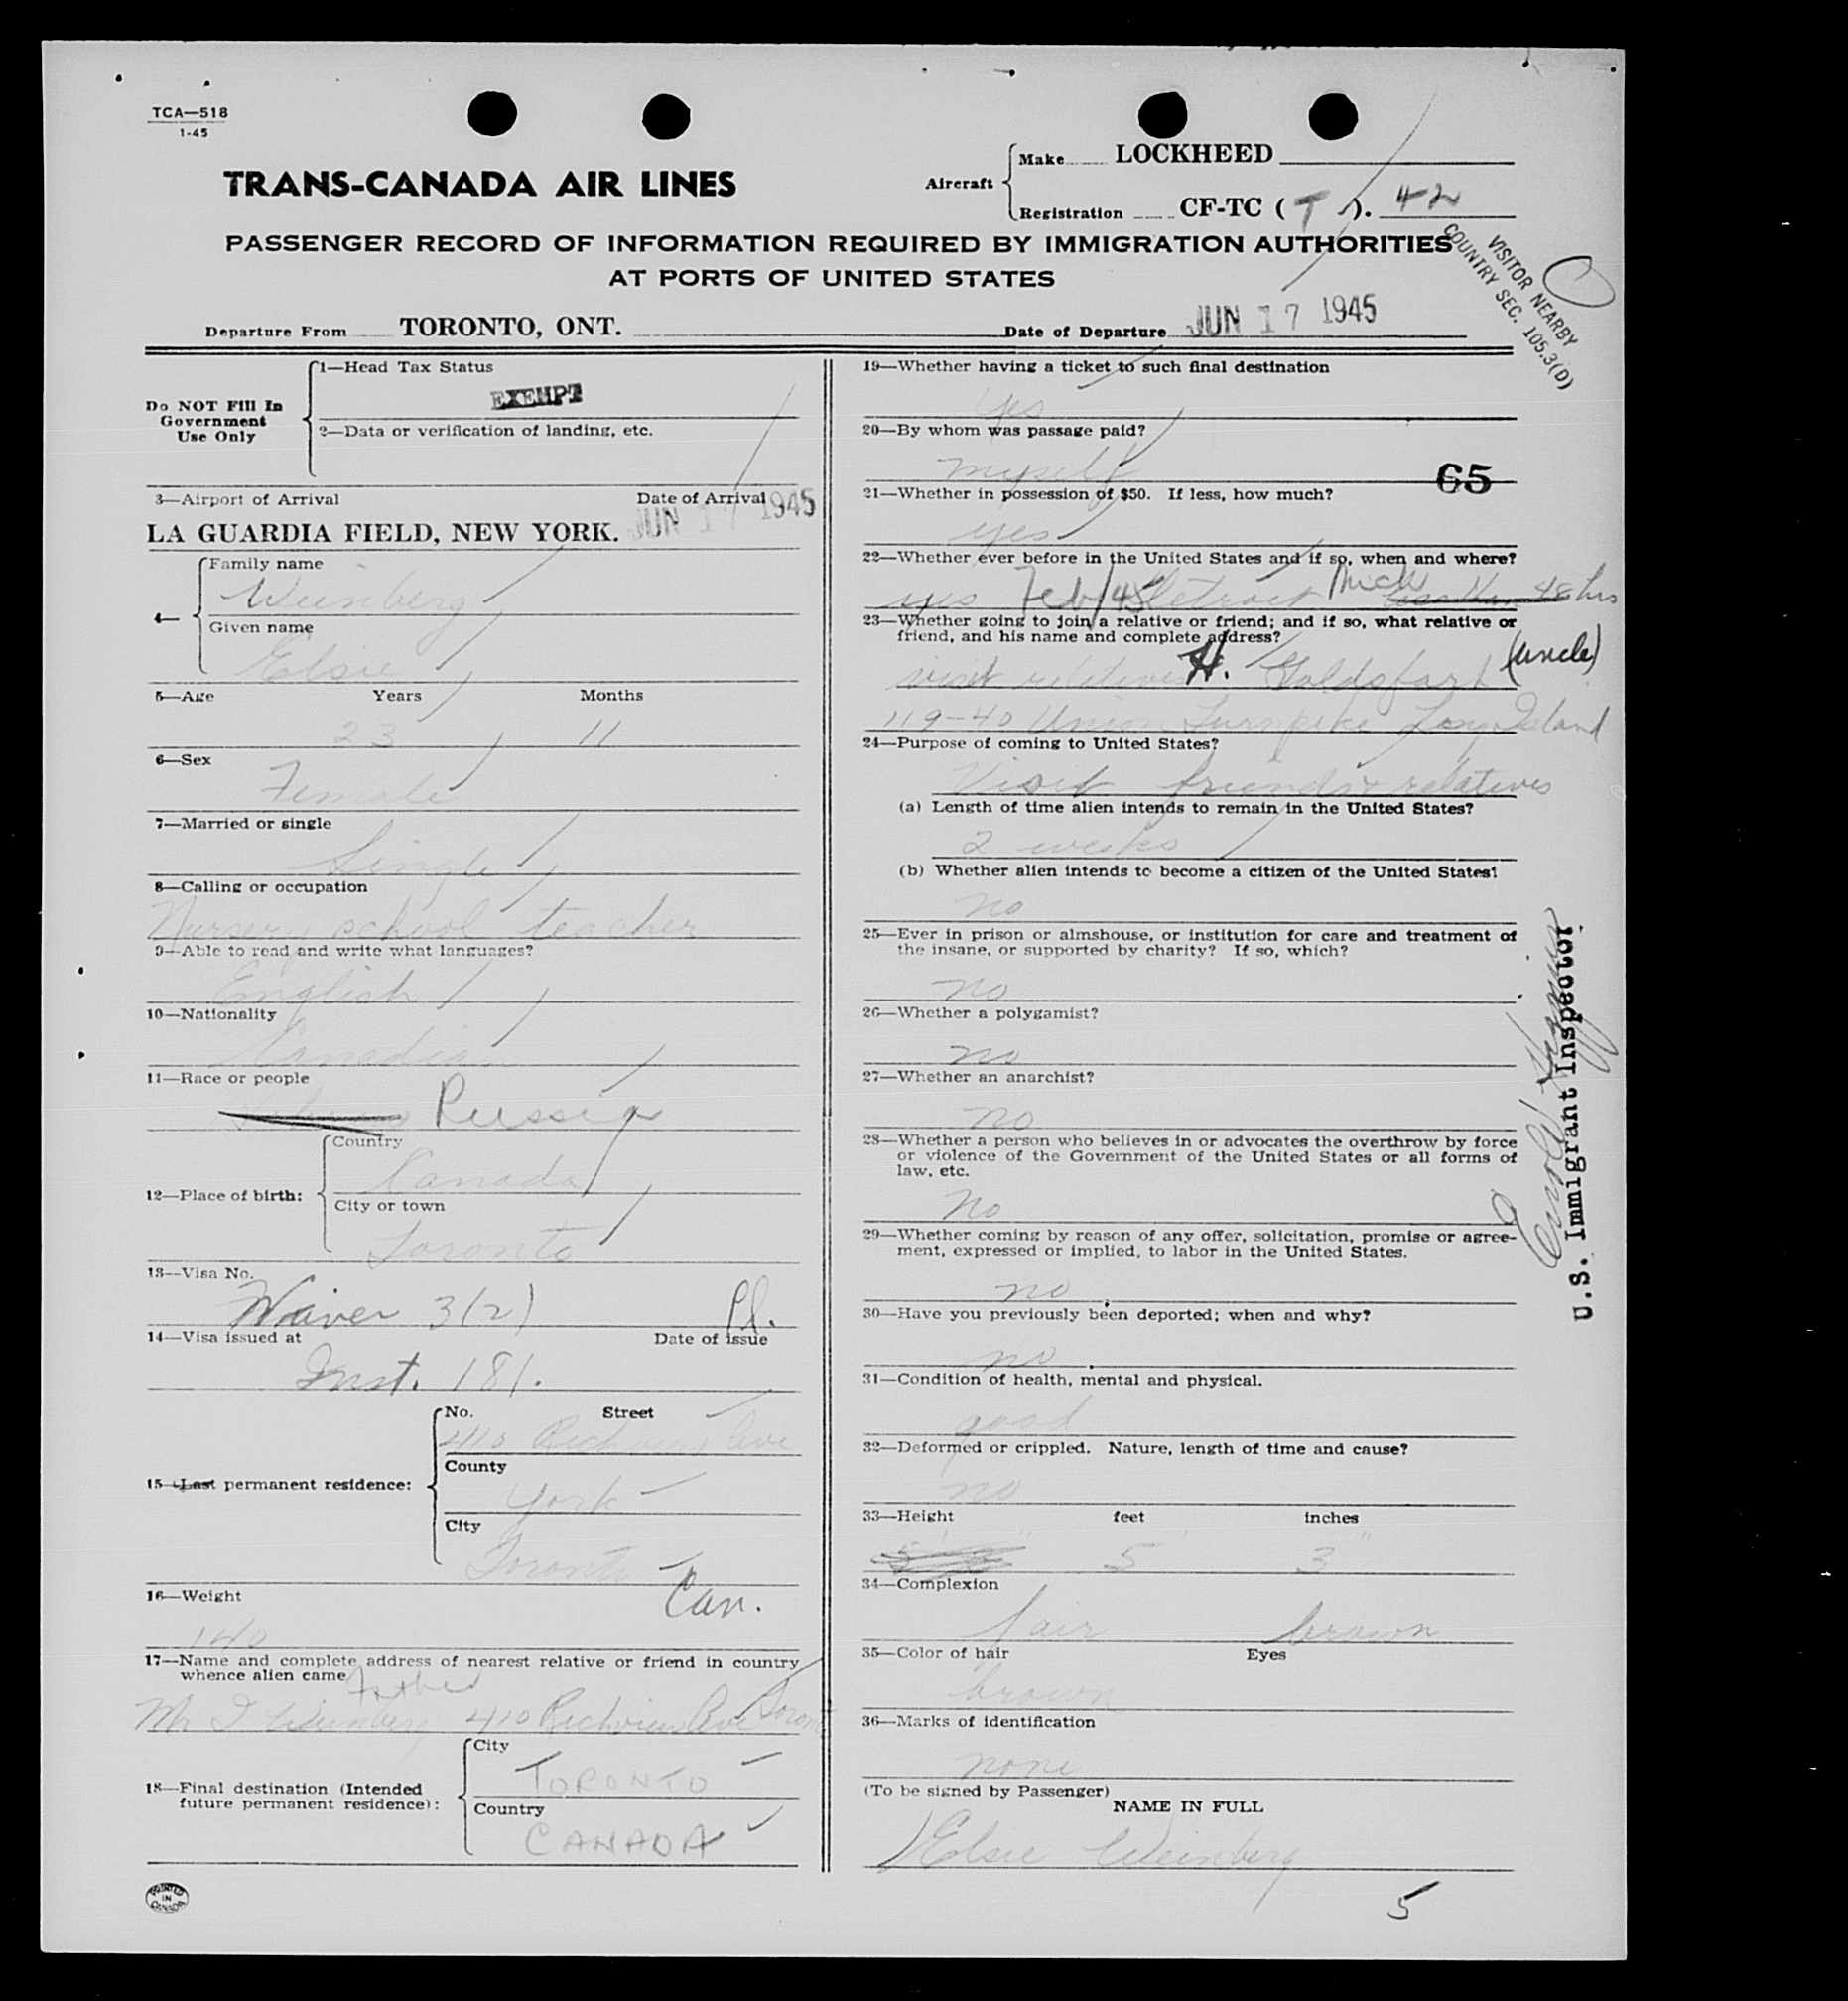 TCA—518
1-45
TRANS-CANADA AIR LINES
Aircraft
Make LOCKHEED
Registration CF-TC ( T ). 42
PASSENGER RECORD OF INFORMATION REQUIRED BY IMMIGRATION AUTHORITIES
AT PORTS OF UNITED STATES
VISITOR NEARBY
COUNTRY SEC. 105.3(D)
Departure From TORONTO, ONT. Date of Departure JUN 17 1945
Do NOT Fill In
Government
Use Only
1—Head Tax Status
EXEMPT
2—Data or verification of landing, etc.
3—Airport of Arrival Date of Arrival
LA GUARDIA FIELD, NEW YORK. JUN 17 1945
4—
Family name
Weinberg
Given name
Elsie
5—Age Years Months
23 11
6—Sex
Female
7—Married or single
Single
8—Calling or occupation
Nursery school teacher
9—Able to read and write what languages?
English
10—Nationality
Canadian
11—Race or people
Russia
12—Place of birth:
Country
Canada
City or town
Toronto
13—Visa No.
Waiver 3(2) Pl.
14—Visa issued at Date of issue
Inst. 181.
15—Last permanent residence:
No. Street
410 Ave
County
York
City
Toronto
Can.
16—Weight
140
17—Name and complete address of nearest relative or friend in country
whence alien came
Father
Mr I Weinberg 410 Ave Toront
18—Final destination (Intended
future permanent residence):
City
TORONTO
Country
CANADA
PRINTED
IN
CANADA
19—Whether having a ticket to such final destination
yes
20—By whom was passage paid?
myself
65
21—Whether in possession of $50. If less, how much?
yes
22—Whether ever before in the United States and if so, when and where?
yes Feb/45 Detroit Mich less than 48 hrs
23—Whether going to join a relative or friend; and if so, what relative or
friend, and his name and complete address?
visit relatives H. Goldsfart (uncle)
119-40 Union Turnpike Long Island
24—Purpose of coming to United States?
Visit friends & relatives
(a) Length of time alien intends to remain in the United States?
2 weeks
(b) Whether alien intends to become a citizen of the United States?
no
25—Ever in prison or almshouse, or institution for care and treatment of
the insane, or supported by charity? If so, which?
no
26—Whether a polygamist?
no
27—Whether an anarchist?
no
28—Whether a person who believes in or advocates the overthrow by force
or violence of the Government of the United States or all forms of
law, etc.
No
29—Whether coming by reason of any offer, solicitation, promise or agree-
ment, expressed or implied, to labor in the United States.
no
30—Have you previously been deported; when and why?
no
31—Condition of health, mental and physical.
good
32—Deformed or crippled. Nature, length of time and cause?
no
33—Height feet inches
5' 3"
34—Complexion
fair brown
35—Color of hair Eyes
brown
36—Marks of identification
none
(To be signed by Passenger)
NAME IN FULL
Elsie Weinberg
5
U.S. Immigrant Inspector